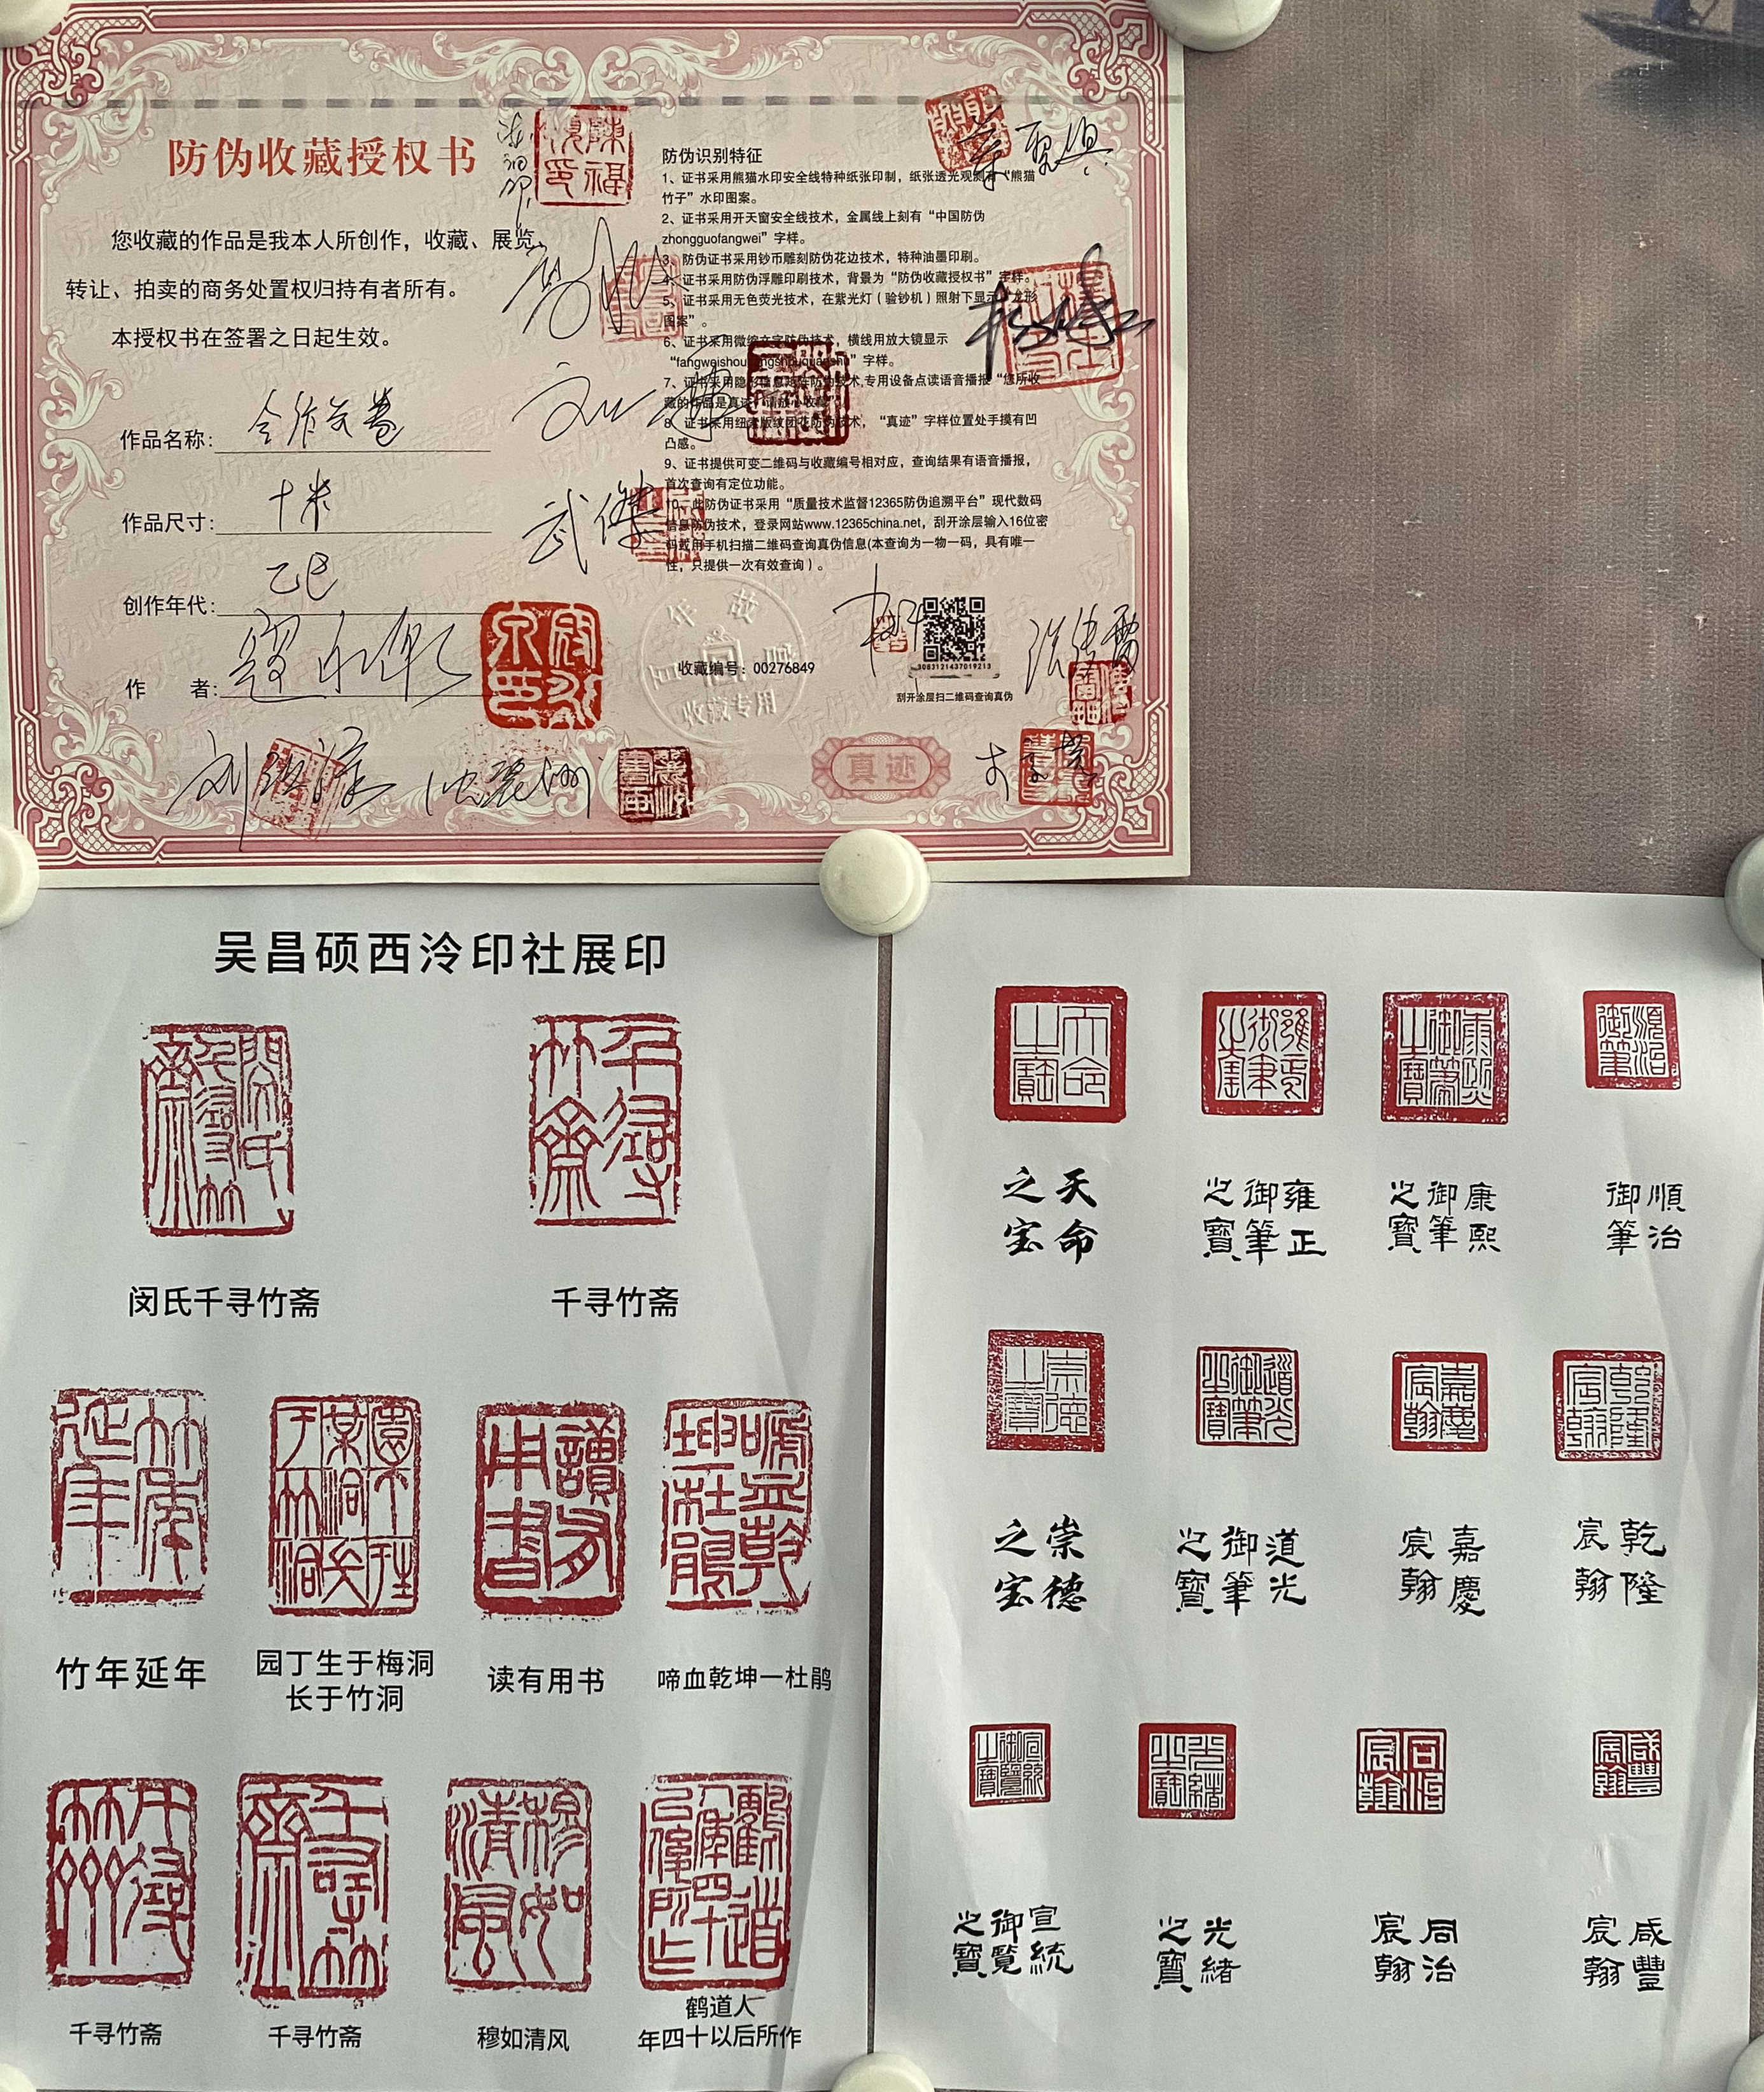 防伪收藏授权书
您收藏的作品是我本人所创作，收藏、展览、
转让、拍卖的商务处置权归持有者所有。
本授权书在签署之日起生效。
作品名称：合作长卷
作品尺寸：十米
创作年代：乙巳
作　　者：
武傑
防伪识别特征
1、证书采用熊猫水印安全线特种纸张印制，纸张透光观测有“熊猫
竹子”水印图案。
2、证书采用开天窗安全线技术，金属线上刻有“中国防伪
zhongguofangwei”字样。
3、防伪证书采用钞币雕刻防伪花边技术，特种油墨印刷。
4、证书采用防伪浮雕印刷技术，背景为“防伪收藏授权书”字样。
5、证书采用无色荧光技术，在紫光灯（验钞机）照射下显示“龙形
图案”。
6、证书采用微缩文字防伪技术，横线用放大镜显示
“fangweishoucangshouquanshu”字样。
7、证书采用隐形信息矩阵防伪技术,专用设备点读语音播报“您所收
藏的作品是真迹，请放心收藏”。
8、证书采用纽索版纹团花防伪技术，“真迹”字样位置处手摸有凹
凸感。
9、证书提供可变二维码与收藏编号相对应，查询结果有语音播报，
首次查询有定位功能。
10、此防伪证书采用“质量技术监督12365防伪追溯平台”现代数码
信息防伪技术，登录网站www.12365china.net，刮开涂层输入16位密
码或用手机扫描二维码查询真伪信息(本查询为一物一码，具有唯一
性，只提供一次有效查询）。
收藏编号：00276849
收藏专用
3083121437019213
刮开涂层扫二维码查询真伪
真迹
吴昌硕西泠印社展印
闵氏千寻竹斋
千寻竹斋
竹年延年
园丁生于梅洞
长于竹洞
读有用书
啼血乾坤一杜鹃
千寻竹斋
千寻竹斋
穆如清风
鹤道人
年四十以后所作
天命之宝
雍正御筆之寶
康熙御筆之寶
順治御筆
崇德之宝
道光御筆之寶
嘉慶宸翰
乾隆宸翰
宣統御覽之寶
光緒之寶
同治宸翰
咸豐宸翰